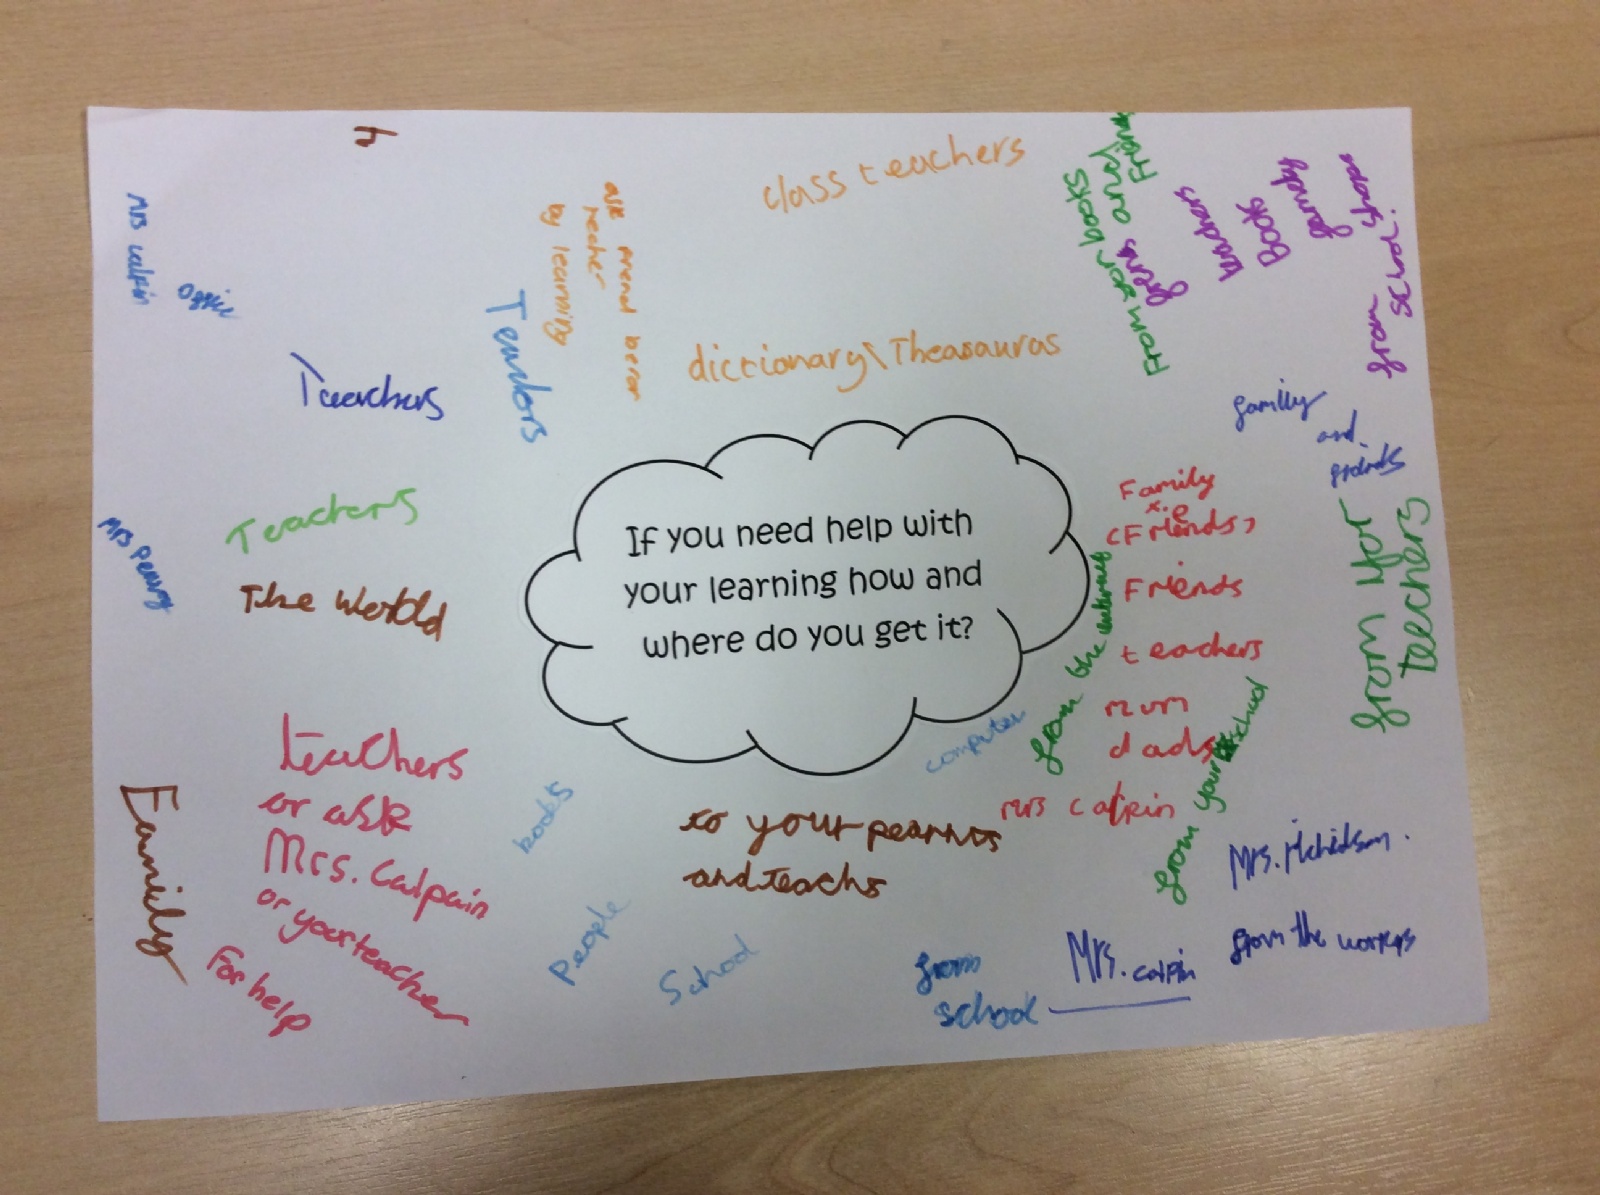 class teachers
by learning
Mrs calpin
office
Teachers
dictionary\Theasauras
from yor books
and Friends
teachers
Books
family
from
school.
familly
and
Teachers
The World
Mrs Penny
If you need help with
your learning how and
where do you get it?
Family
Friends
teachers
mum
dads
Mrs calpin
from the internet
from your school
from yor
teechers
computer
books
People
School
to your pearnts
and teachs
teachers
or ask
Mrs. Calpain
or your teacher
For help
Family
from
school
Mrs. calpin
from the workers